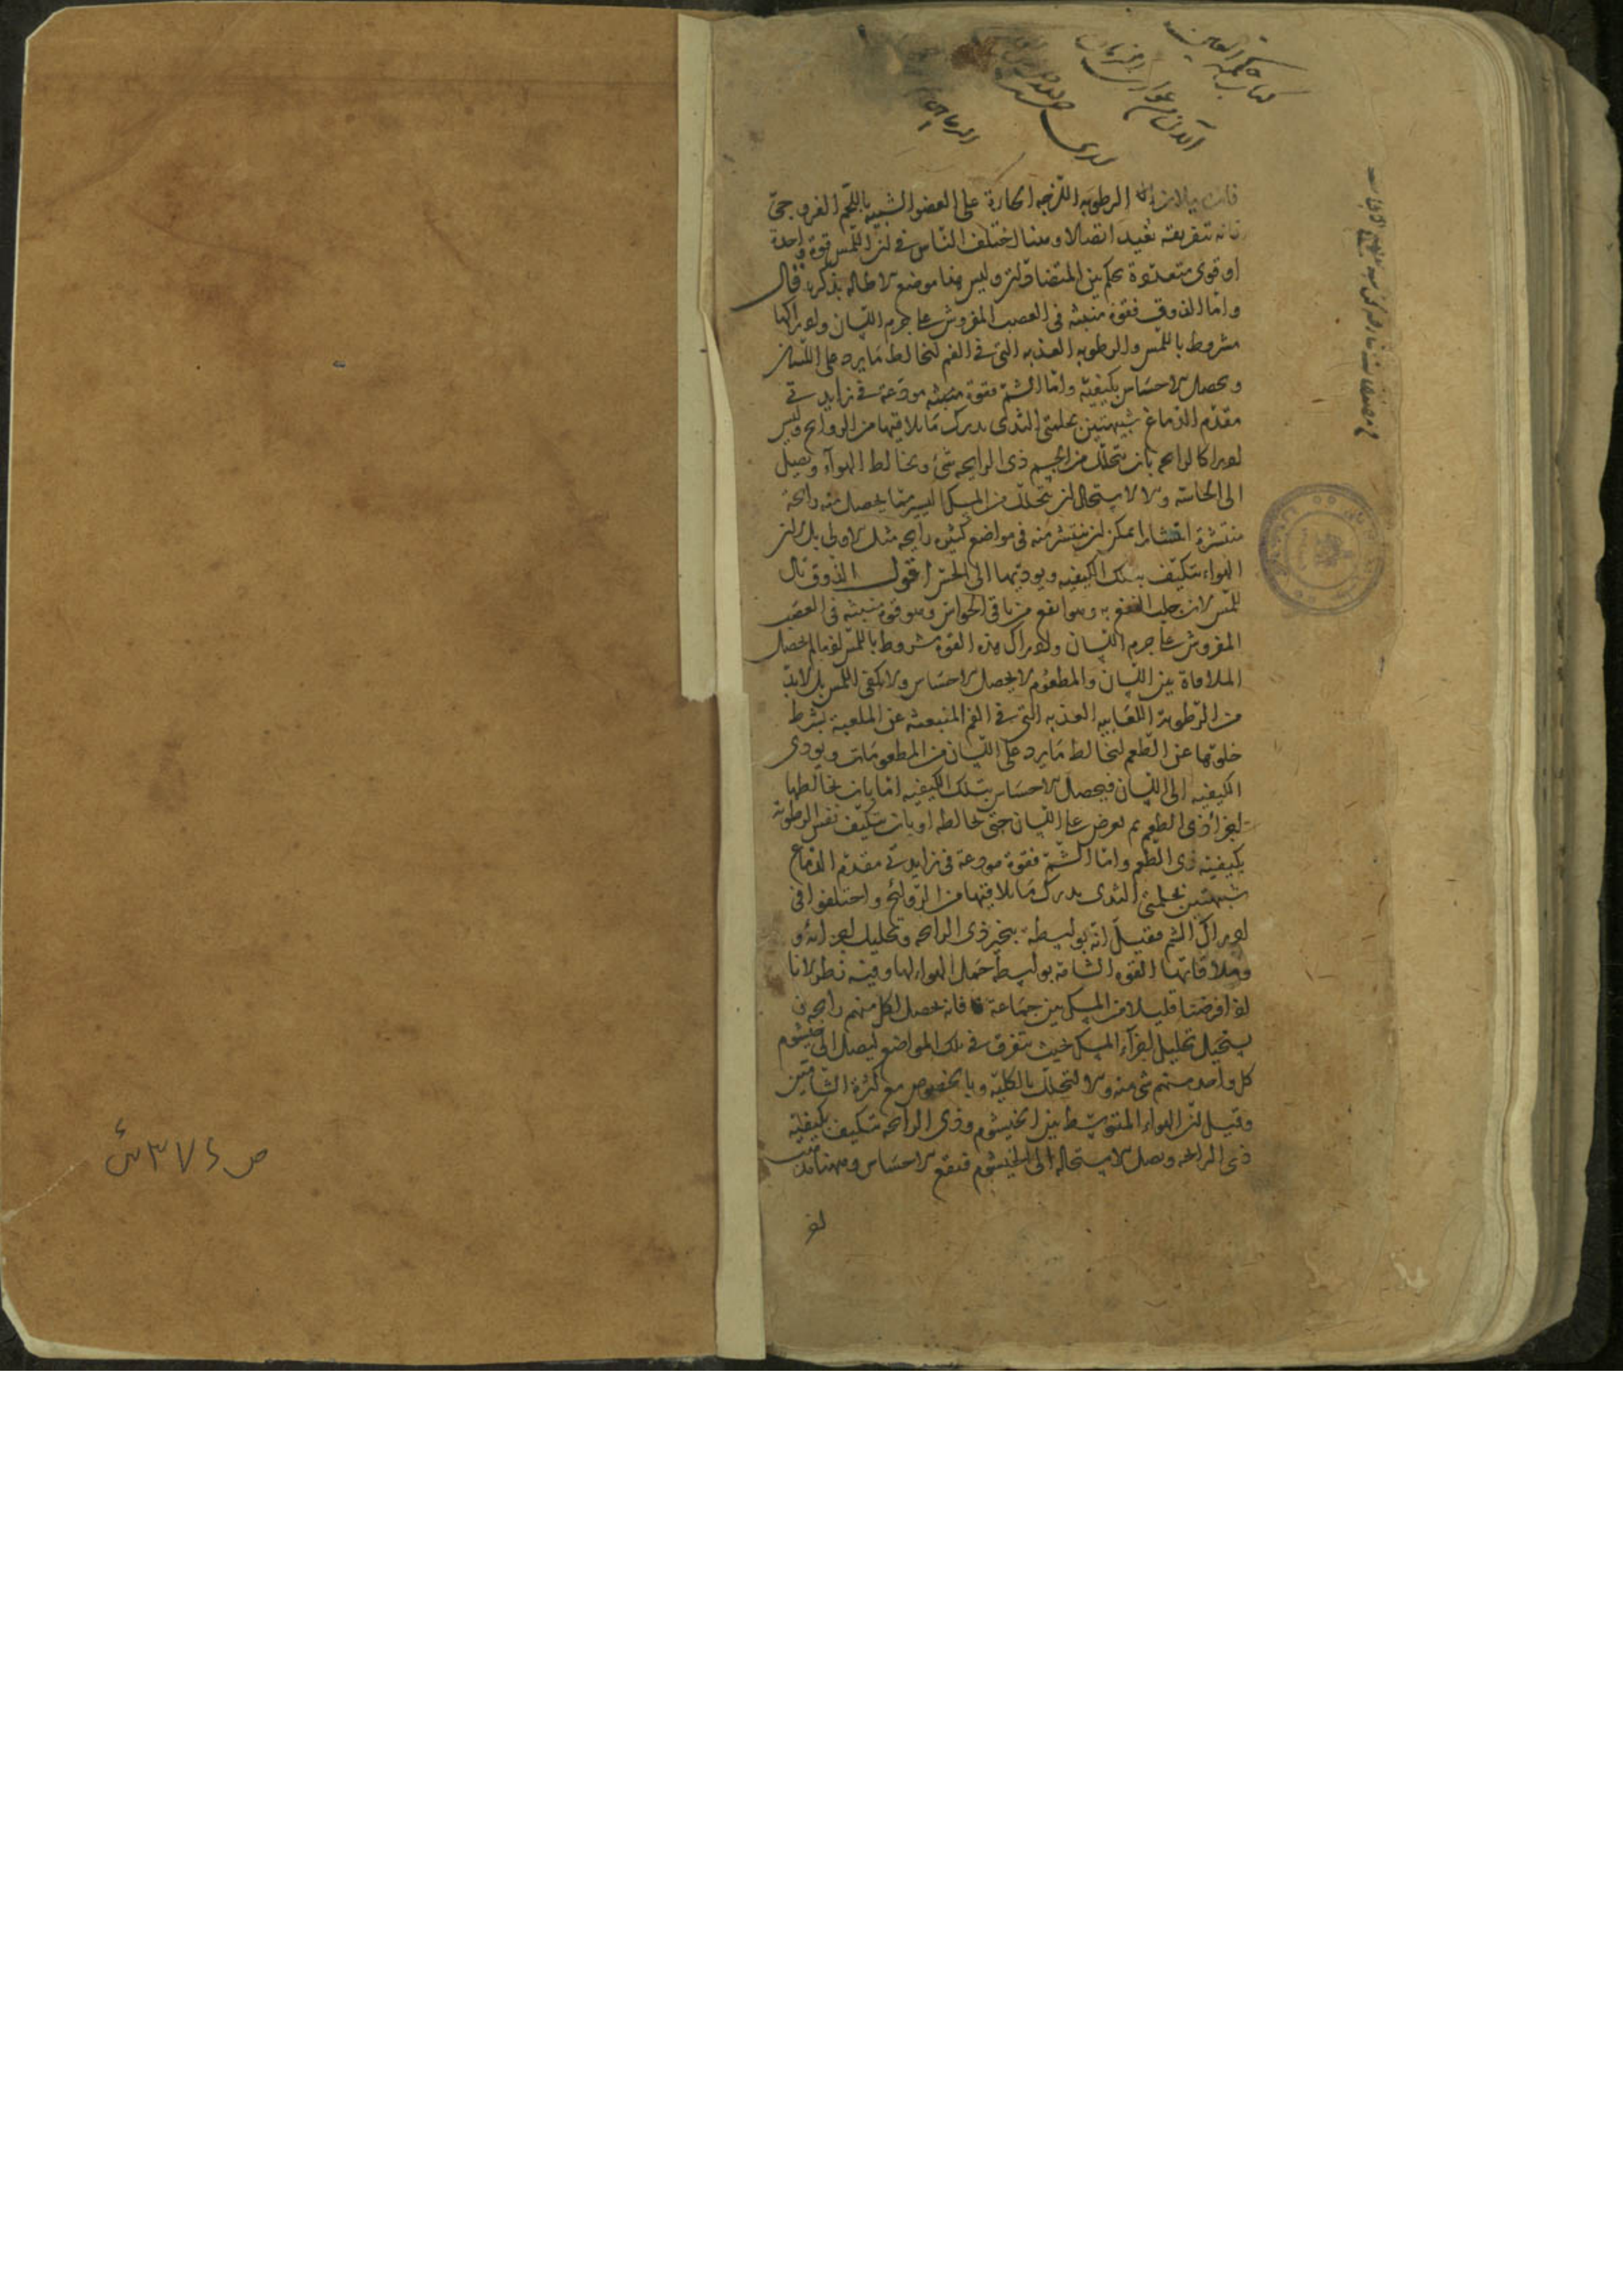 كتاب حكمة العين
فان سيلان الرطوبه اللزجه الحارة على العضو الشبيه باللحم الغروى حتى
فانه تتفريقه تفيد اتصالا وهنا اختلف الناس فى ان اللمس قوة واحدة
او قوى متعددة يحكم بين المتضادات وليس هنا موضع الاطاله بذكرها قال
واما الذوق فقوة منبثه فى العصب المفروش على جرم اللسان وادراكها
مشروط باللمس والرطوبه العذبه التى فى الفم لتخالط ما يرد على اللسان
ويحصل الاحساس بكيفيته واما الشم فقوة منبثه مودعة فى زايدتى
مقدم الدماغ شبيهتين بحلمتى الثدى يدرك ما يلاقيها من الروايح وليس
ادراكا لرايحه بان يتحلل من الجسم ذى الرايحه شئ ويخالط الهوآء ويصل
الى الحاسة والا لاستحال ان يتحلل من المسك اليسير ما يحصل منه رايحة
منتشرة انتشارا يمكن ان ينتشر منه فى مواضع كثيره رايحه مثل الاولى بل ان
الهواء يتكيف بتلك الكيفيه ويوديها الى الحس اقول الذوق تال
للمس لان جلب النفع به وهو انفع من باقى الحواس وهو قوة منبثه فى العصب
المفروش على جرم اللسان وادراك هذه القوة مشروط باللمس اذ ما لم يحصل
الملاقاة بين اللسان والمطعوم لا يحصل الاحساس ولا يكفى اللمس بل لا بد
من الرطوبة اللعابيه العذبه التى فى الفم المنبعثه عن الملعبة بشرط
خلوها عن الطعم لتخالط ما يرد على اللسان من المطعومات ويودى
الكيفيه الى اللسان فيحصل الاحساس بتلك الكيفيه اما بان تخالطها
اجزآء ذى الطعم ثم تعوض على اللسان حتى تخالطه او بان تتكيف نفس الرطوبة
بكيفيته ذى الطعم واما الشم فقوة مودعة فى زايدتى مقدم الدماغ
شبيهتين بحلمتى الثدى يدرك ما يلاقيها من الروائح واختلفوا فى
ادراك الشم فقيل انه بواسطه تبخير ذى الرايحه وتحليل اجزائه و
وملاقاتها القوه الشامة بواسطة حمل الهواء لها وفيه نظر لانا
اذا فرضنا قليلا من المسك بين جماعة فانه يحصل لكل منهم رايحه و
يستحيل تحليل اجزآء المسك حيث يتفرق فى تلك المواضع ليصل الى خيشوم
كل واحد منهم شئ منه والا لتحلل بالكلية وبالخصوص مع كثرة الشامين
وقيل ان الهواء المتوسط بين الخيشوم وذى الرايحه تتكيف بكيفية
ذى الرايحه ويصل الاستحاله الى الخيشوم فيقع الاحساس وههنا
اذ
ص ٣٧٤